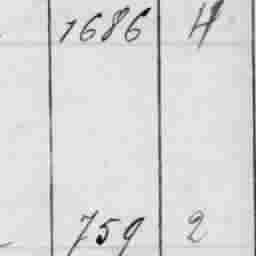 1686 4
759 2